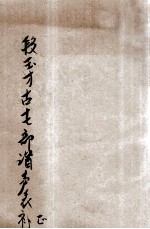 段玉才古十七部諧聲表補
正